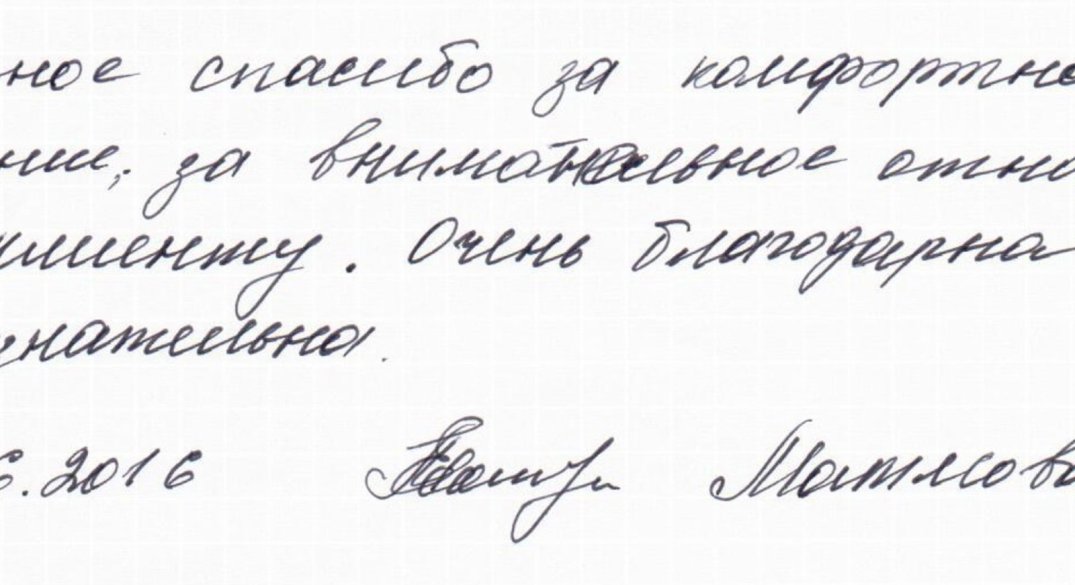 ное спасибо за комфортно
ние, за внимательное отно
клиенту. Очень благодарна
знательна.
6.2016